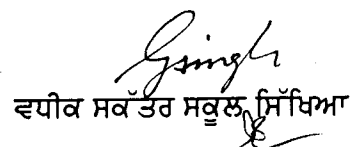 Gsingh
ਵਧੀਕ ਸਕੱਤਰ ਸਕੂਲ ਸਿੱਖਿਆ